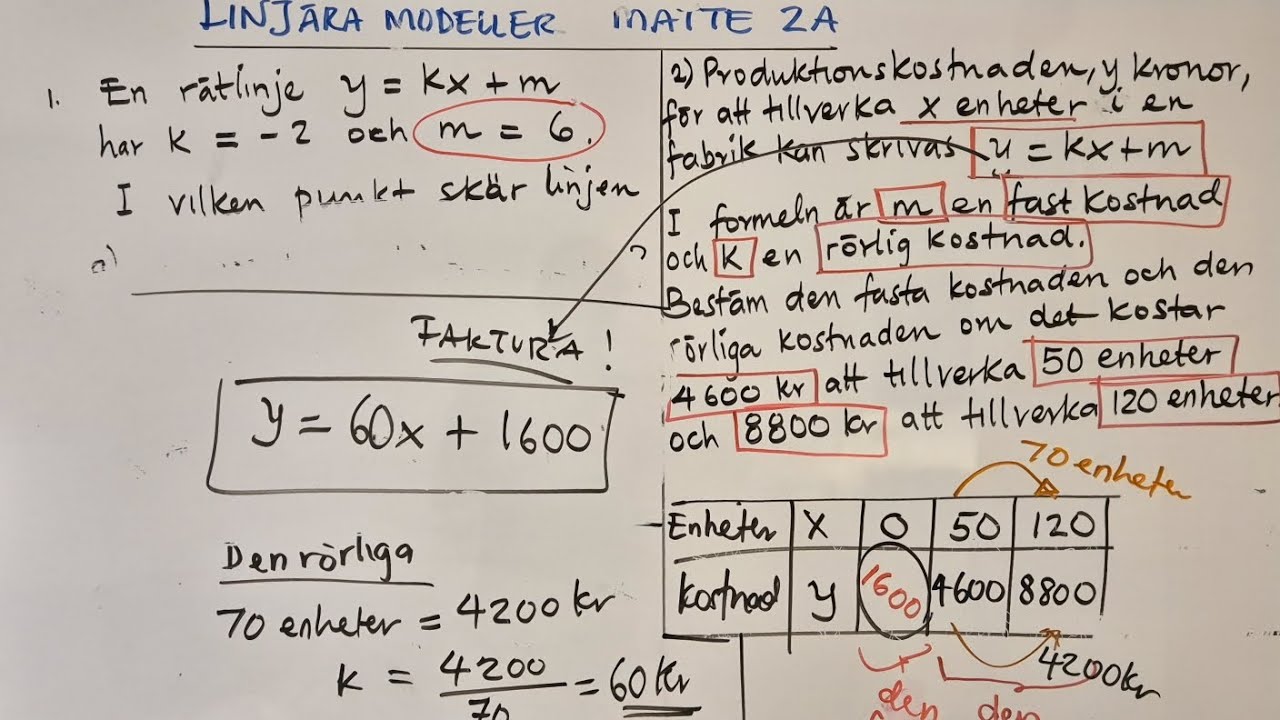 LINJÄRA MODELLER MATTE 2A
1. En rätlinje y = kx + m
har k = -2 och m = 6.
I vilken punkt skär linjen
a)
?
FAKTURA!
y = 60x + 1600
Den rörliga
70 enheter = 4200 kr
k = 4200/70 = 60 kr
2) Produktionskostnaden, y kronor,
för att tillverka x enheter i en
fabrik kan skrivas y = kx + m
I formeln är m en fast kostnad
och k en rörlig kostnad.
Bestäm den fasta kostnaden och den
rörliga kostnaden om det kostar
4600 kr att tillverka 50 enheter
och 8800 kr att tillverka 120 enheter
70 enheter
Enheter x 0 50 120
kostnad y 1600 4600 8800
4200 kr
den den